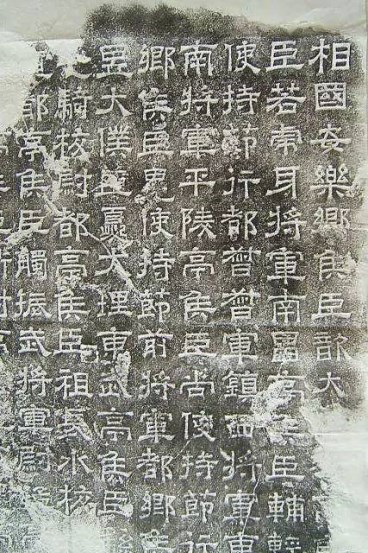 相國安樂鄉侯臣歆太
臣若虎牙將軍南昌亭侯臣輔輕
使持節行都督督軍鎮西將軍東
南將軍平陵亭侯臣尚使持節行
鄉侯臣晃使持節前將軍都鄉侯
昱大僕臣夔大理東武亭侯臣繇
騎校尉都亭侯臣祖長水校
都亭侯臣觸振武將軍尉